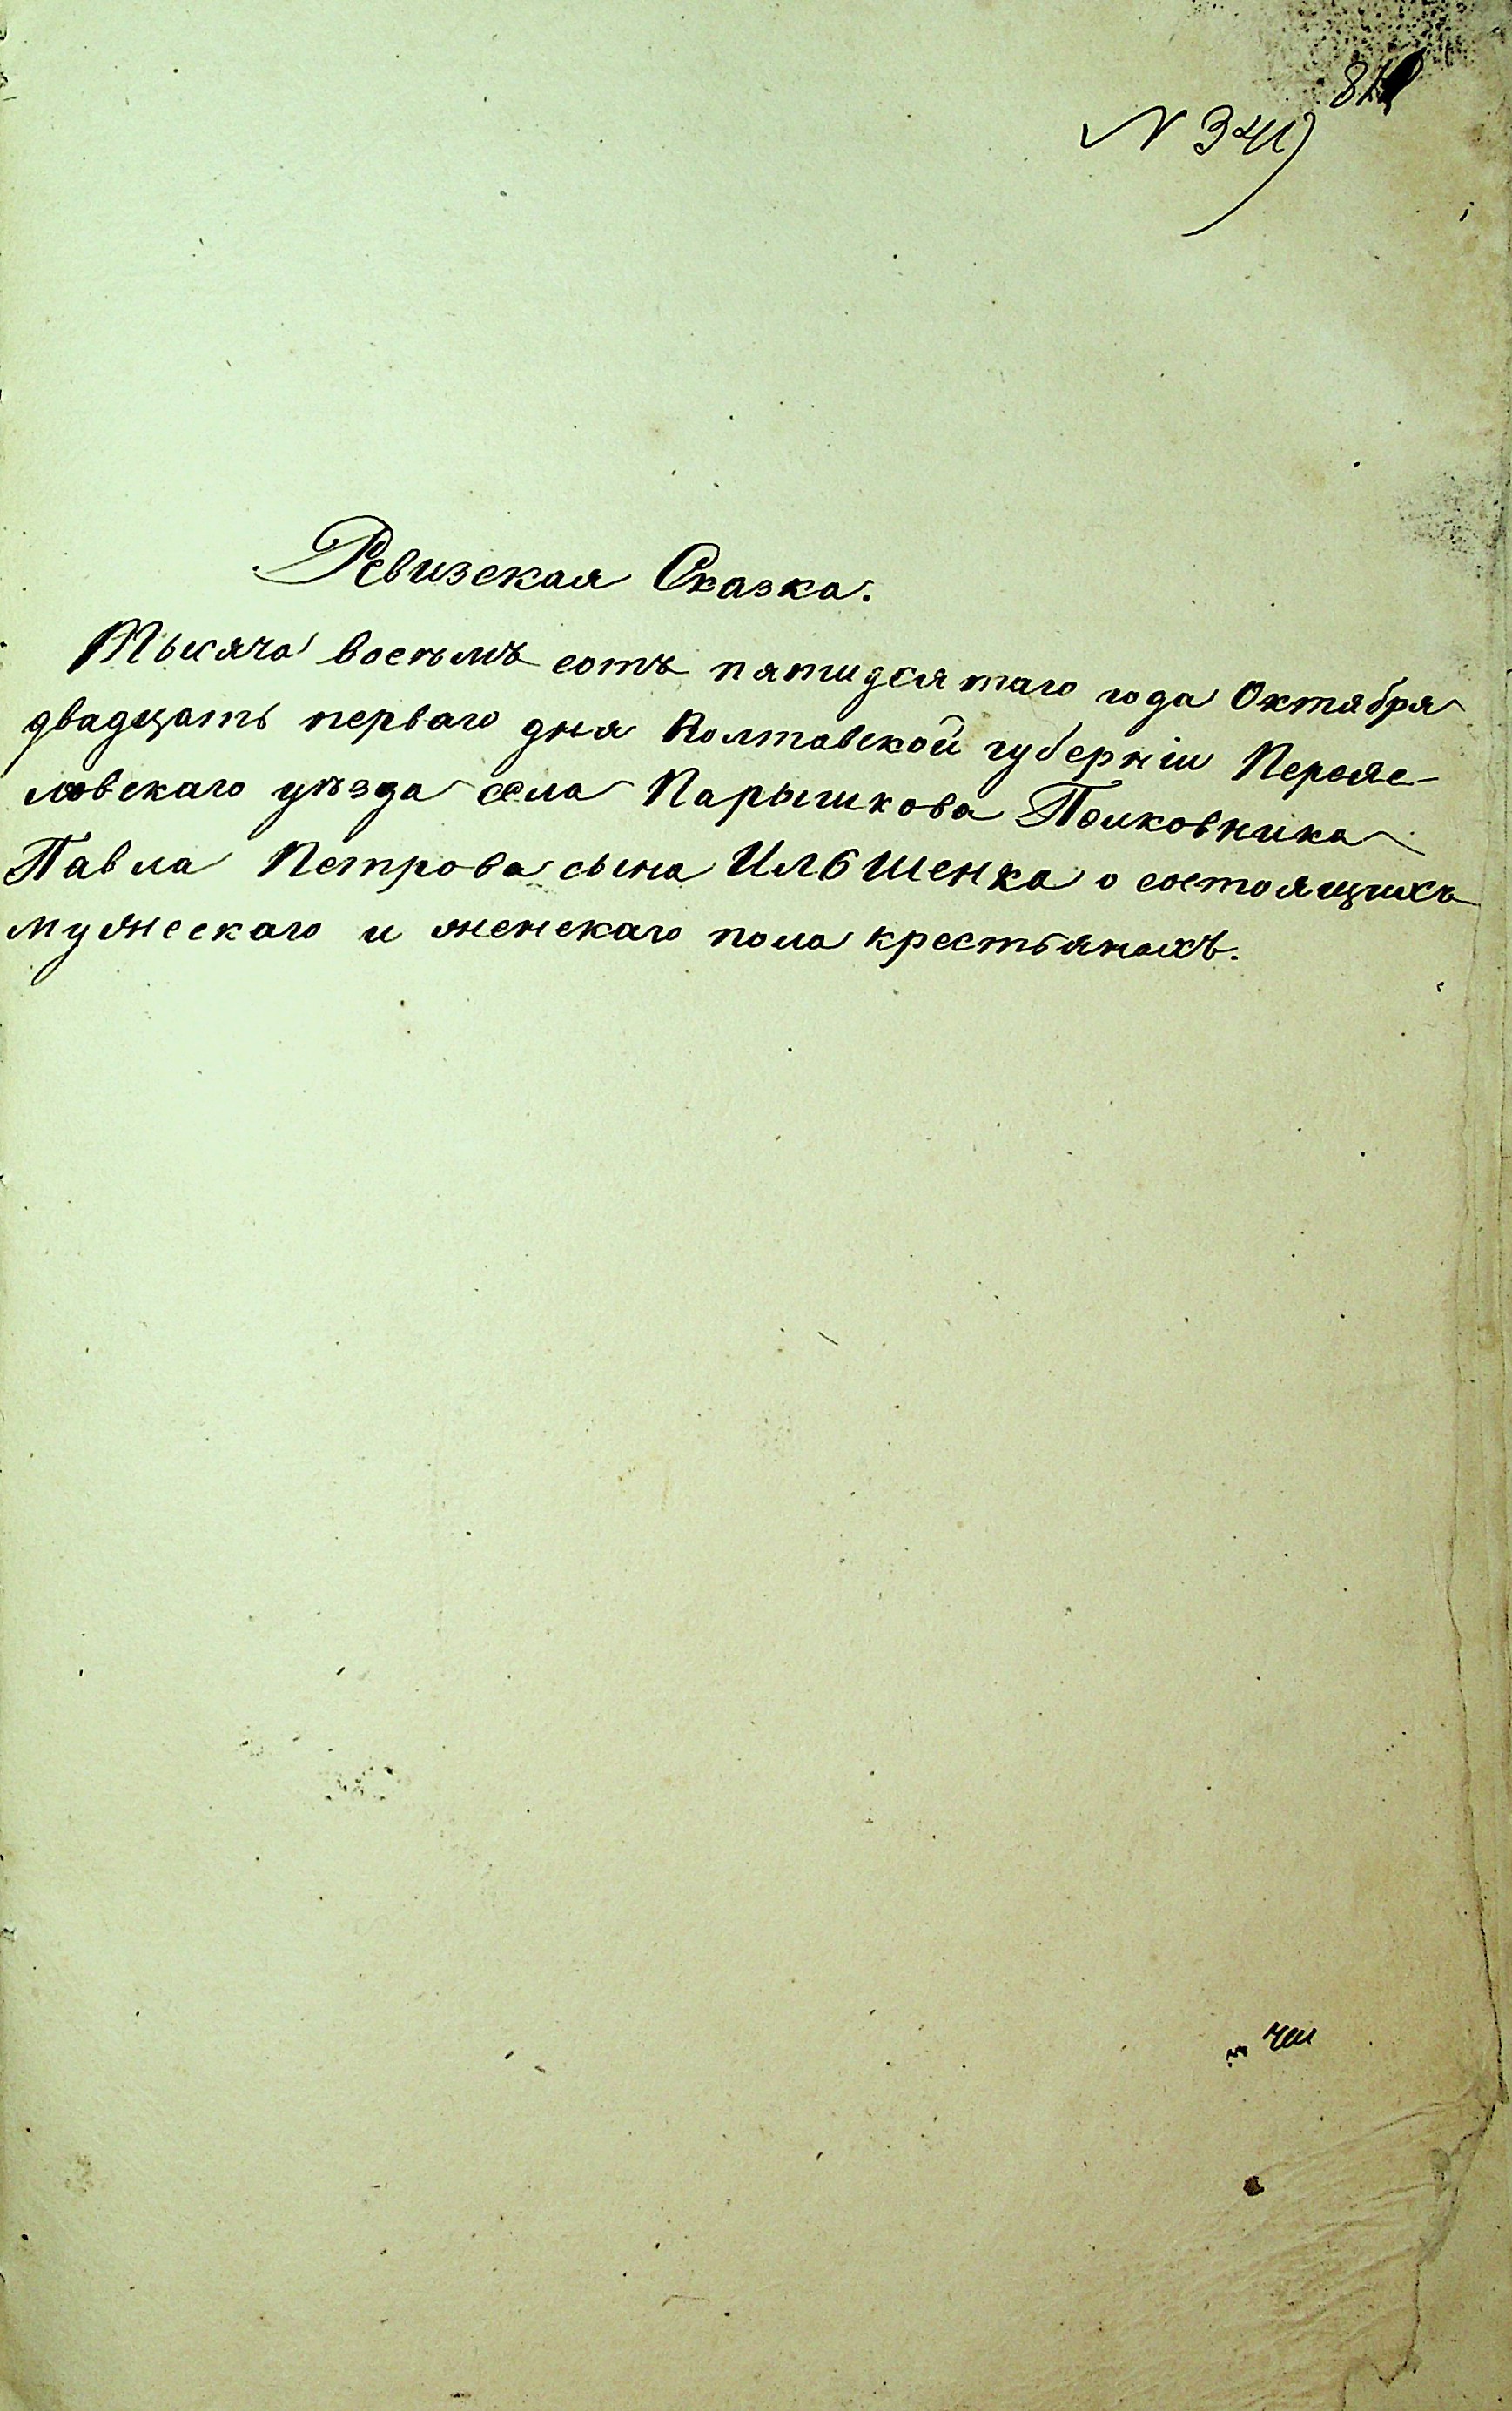 N 341)
Ревизская Сказка.
Тысяча восемъ сотъ пятидесятаго года Октября
двадцать перваго дня Полтавской губерніи Перояс-
ловскаго уѣзда села Парышкова Полковника
Павла Петрова сына Ильяшенка о состоящихъ
мужескаго и женскаго пола крестьянахъ.